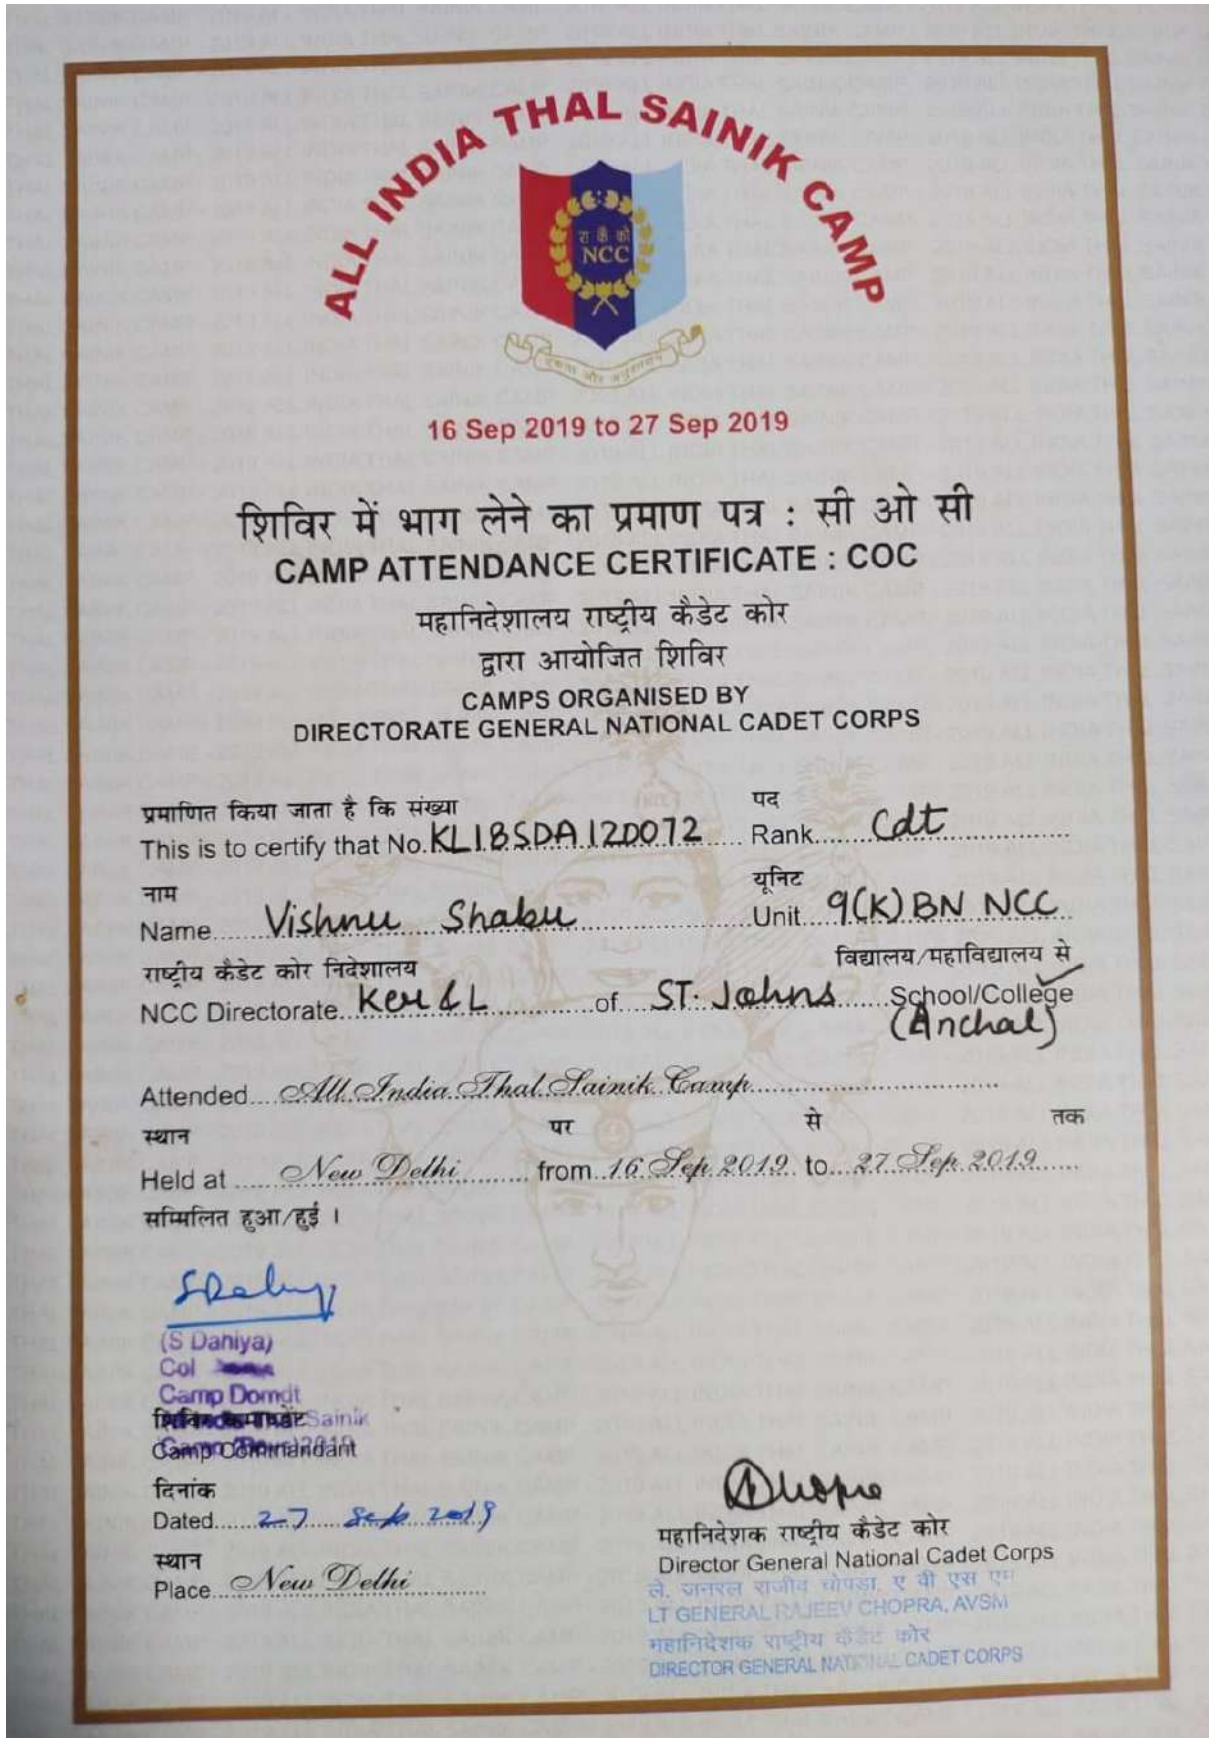 ALL INDIA THAL SAINIK CAMP
रा कै को
NCC
एकता और अनुशासन
16 Sep 2019 to 27 Sep 2019
शिविर में भाग लेने का प्रमाण पत्र : सी ओ सी
CAMP ATTENDANCE CERTIFICATE : COC
महानिदेशालय राष्ट्रीय कैडेट कोर
द्वारा आयोजित शिविर
CAMPS ORGANISED BY
DIRECTORATE GENERAL NATIONAL CADET CORPS
प्रमाणित किया जाता है कि संख्या पद
This is to certify that No. KL18SDA120072 Rank Cdt
नाम यूनिट
Name Vishnu Shabu Unit 9(K) BN NCC
राष्ट्रीय कैडेट कोर निदेशालय विद्यालय/महाविद्यालय से
NCC Directorate Ker & L of ST. Johns School/College
(Anchal)
Attended All India Thal Sainik Camp
स्थान पर से तक
Held at New Delhi from 16 Sep 2019 to 27 Sep 2019
सम्मिलित हुआ/हुई ।
(S Dahiya)
Col
Camp Domdt
शिविर कमाण्डेंट Sainik
Camp Commandant
दिनांक
Dated 27 Sep 2019
स्थान
Place New Delhi
महानिदेशक राष्ट्रीय कैडेट कोर
Director General National Cadet Corps
ले. जनरल राजीव चोपड़ा, ए वी एस एम
LT GENERAL RAJEEV CHOPRA, AVSM
महानिदेशक राष्ट्रीय कैडेट कोर
DIRECTOR GENERAL NATIONAL CADET CORPS